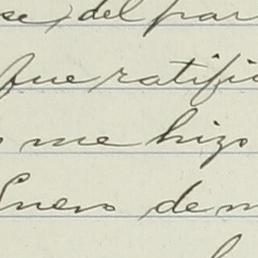 se, del par
fue ratific
me hizo
Enero de m